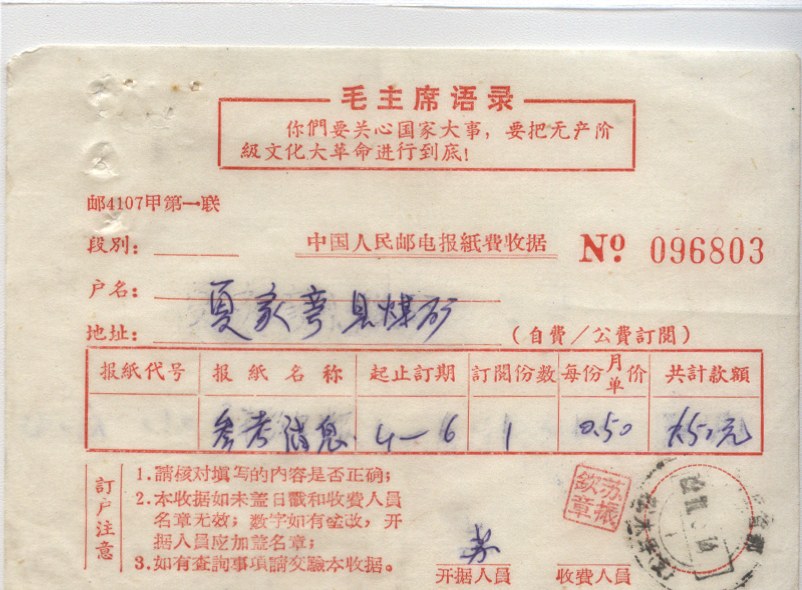 毛主席语录
你們要关心国家大事，要把无产阶
級文化大革命进行到底！
邮4107甲第一联
段別：
中国人民邮电报紙費收据 № 096803
户名：
夏家弯县煤矿
地址：
（自費／公費訂閱）
报紙代号 报紙名称 起止訂期 訂閱份数 每份月单价 共計款額
参考消息 4—6 1 0.50 1.50元
訂户注意
1.請核对填写的内容是否正确；
2.本收据如未盖日戳和收費人員
名章无效；数字如有塗改，开
据人員应加盖名章；
3.如有查詢事項請交驗本收据。
苏振
欽章
苏
开据人員 收費人員